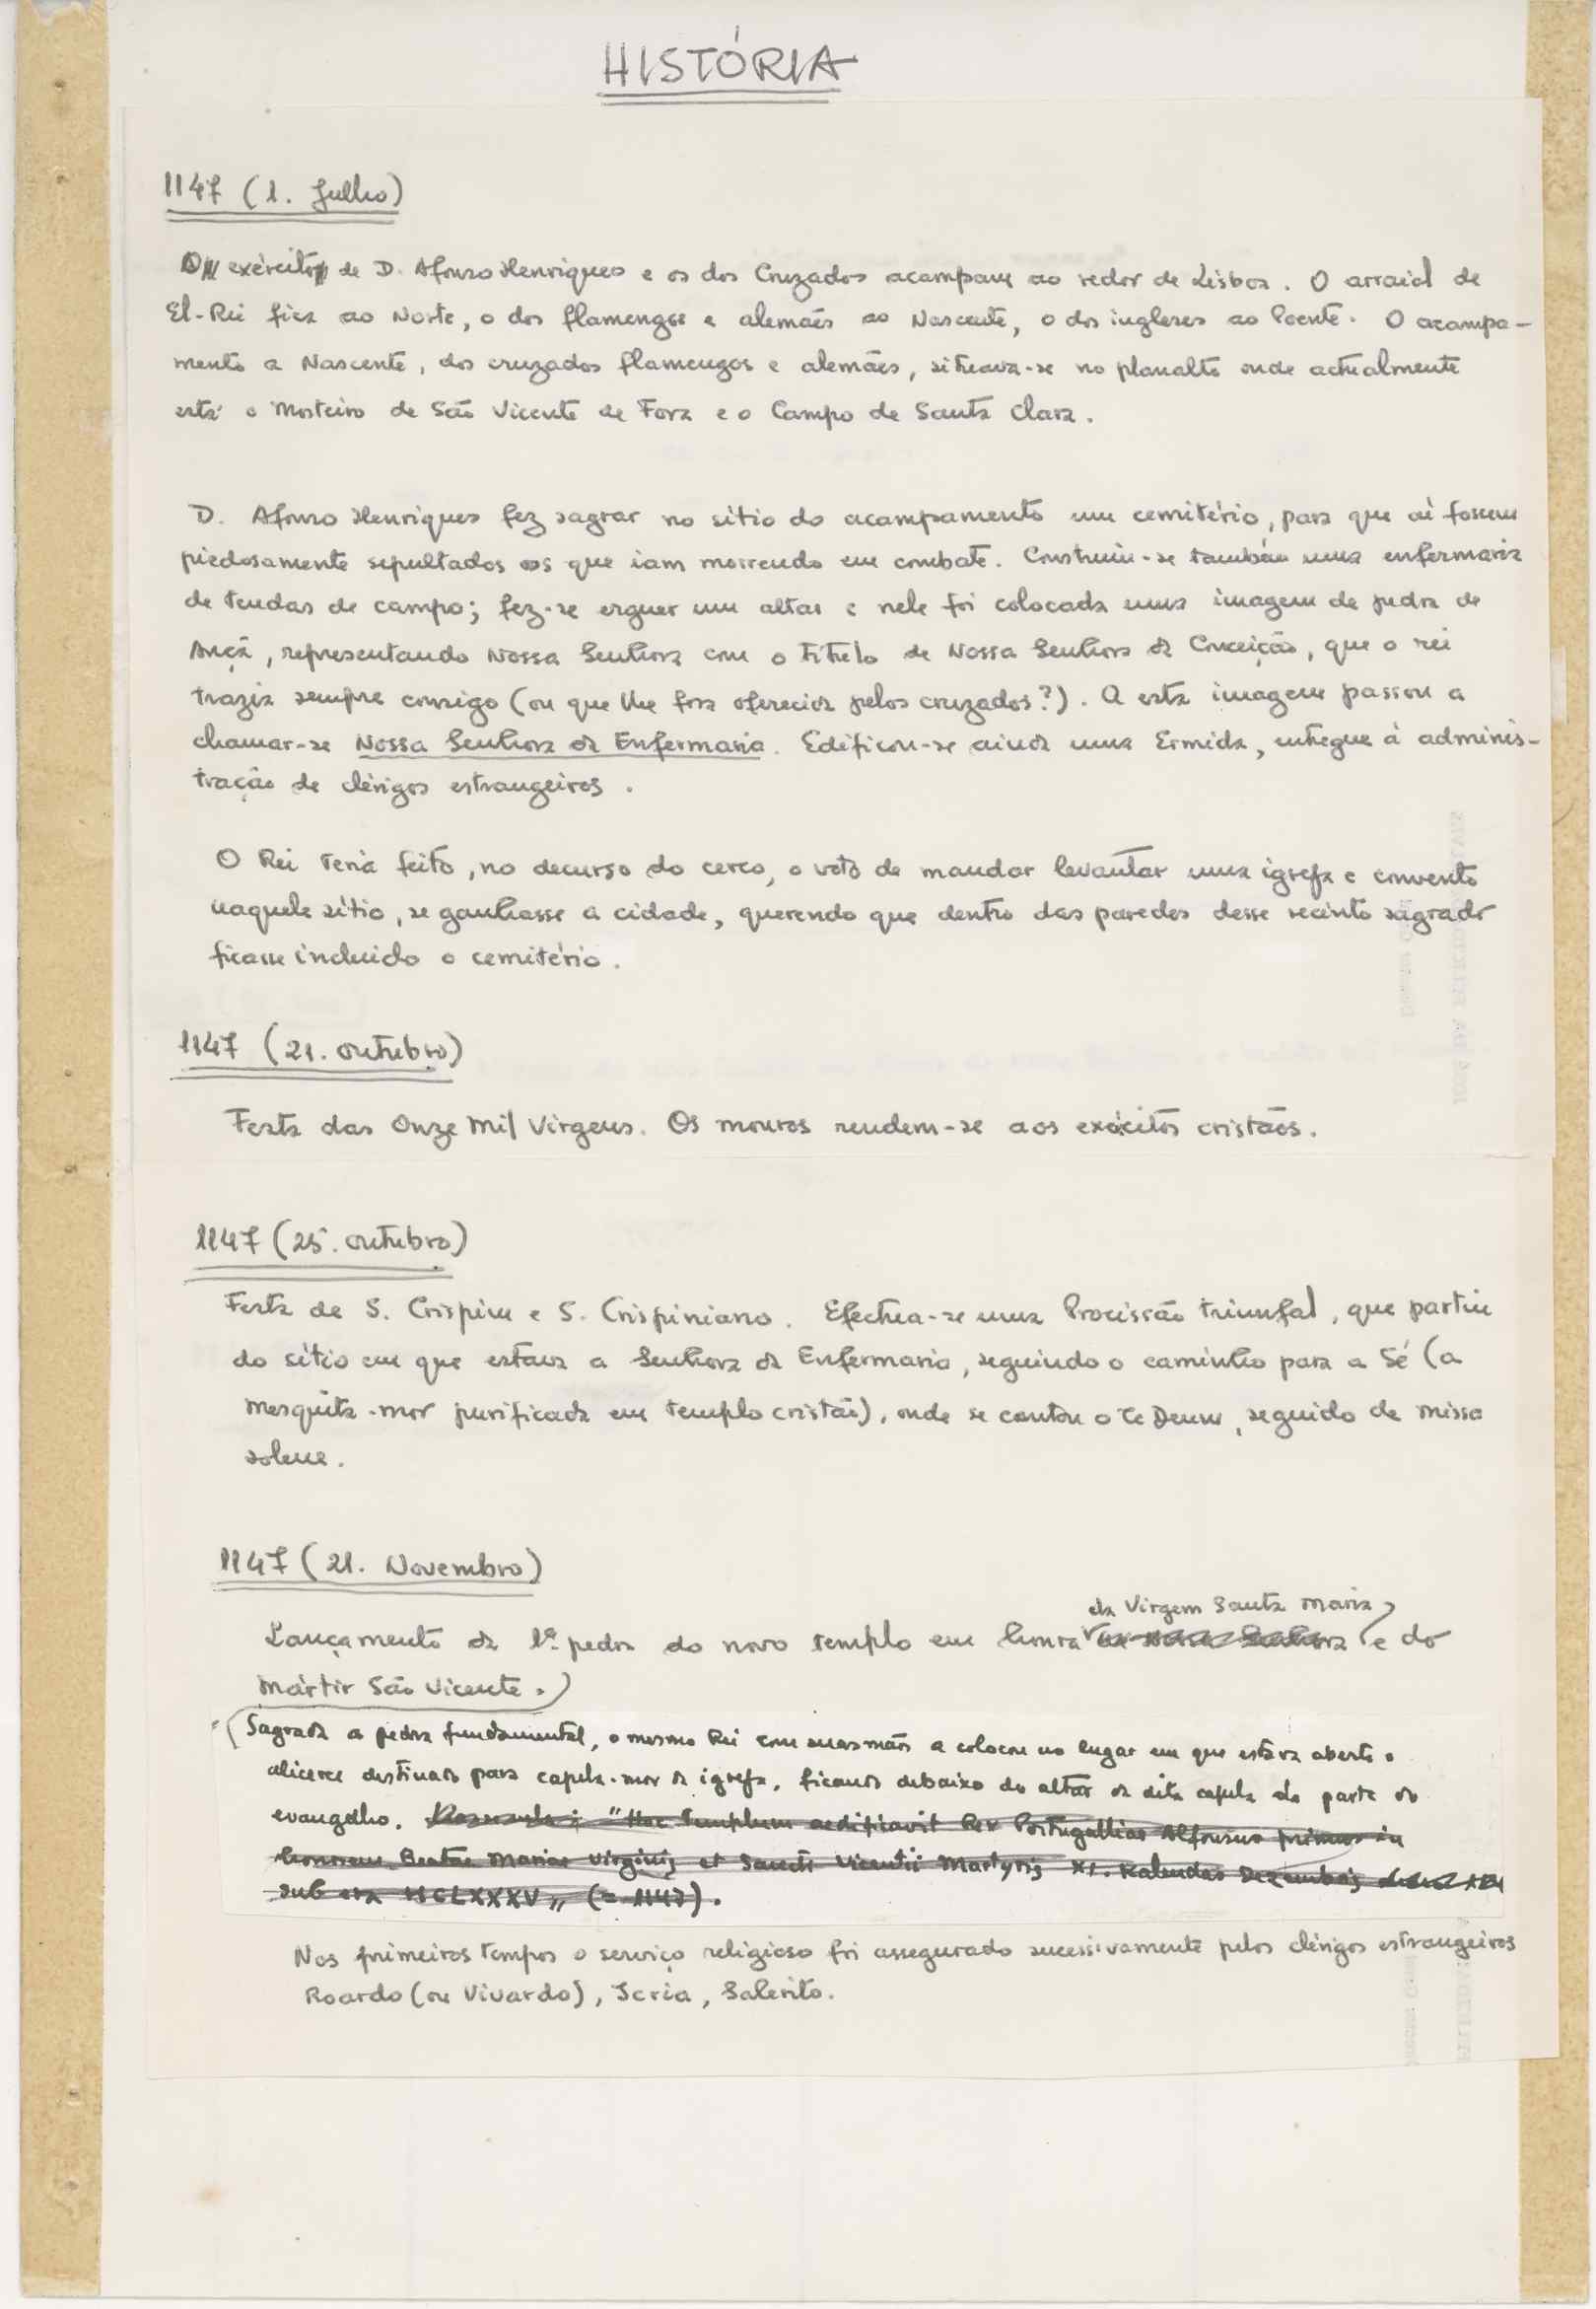 HISTÓRIA
1147 (1. Julho)
O exército de D. Afonso Henriques e os dos Cruzados acampam ao redor de Lisboa. O arraial de
El-Rei fica ao Norte, o dos flamengos e alemães ao Nascente, o dos ingleses ao Poente. O acampa-
mento a Nascente, dos cruzados flamengos e alemães, situava-se no planalto onde actualmente
está o Mosteiro de São Vicente de Fora e o Campo de Santa Clara.
D. Afonso Henriques fez sagrar no sítio do acampamento um cemitério, para que aí fossem
piedosamente sepultados os que iam morrendo em combate. Construiu-se também uma enfermaria
de tendas de campo; fez-se erguer um altar e nele foi colocada uma imagem de pedra de
Ançã, representando Nossa Senhora com o título de Nossa Senhora da Conceição, que o rei
trazia sempre consigo (ou que lhe fora oferecida pelos cruzados?). A esta imagem passou a
chamar-se Nossa Senhora da Enfermaria. Edificou-se ainda uma Ermida, entregue à adminis-
tração de clérigos estrangeiros.
O Rei teria feito, no decurso do cerco, o voto de mandar levantar uma igreja e convento
naquele sítio, se ganhasse a cidade, querendo que dentro das paredes desse recinto sagrado
ficasse incluido o cemitério.
1147 (21. outubro)
Festa das Onze Mil Virgens. Os mouros rendem-se aos exércitos cristãos.
1147 (25. outubro)
Festa de S. Crispim e S. Crispiniano. Efectua-se uma Procissão triunfal, que partiu
do sítio em que estava a Senhora da Enfermaria, seguindo o caminho para a Sé (a
mesquita-mor purificada em templo cristão), onde se cantou o Te Deum, seguido de missa
solene.
1147 (21. Novembro)
da Virgem Santa Maria
Lançamento da 1ª pedra do novo templo em honra de Nossa Senhora e do
mártir São Vicente.
(Sagrada a pedra fundamental, o mesmo Rei com suas mãos a colocou no lugar em que estava aberto o
alicerce destinado para capela-mor da igreja, ficando debaixo do altar da dita capela da parte do
evangelho. "Hoc Templum aedificavit Rex Portugalliae Alfonsus primus in
honorem Beatae Mariae Virginis et Sancti Vicentii Martyris XI. Kalendas Dezembris
sub era MCLXXXV" (= 1147).
Nos primeiros tempos o serviço religioso foi assegurado sucessivamente pelos clérigos estrangeiros
Roardo (ou Vivardo), Icria, Salerito.